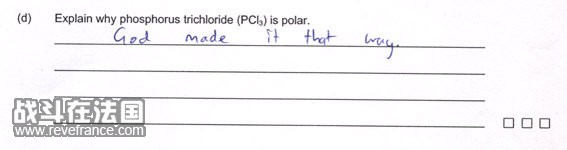 (d) Explain why phosphorus trichloride (PCl₃) is polar.
God made it that way.
战斗在法国
www.revefrance.com